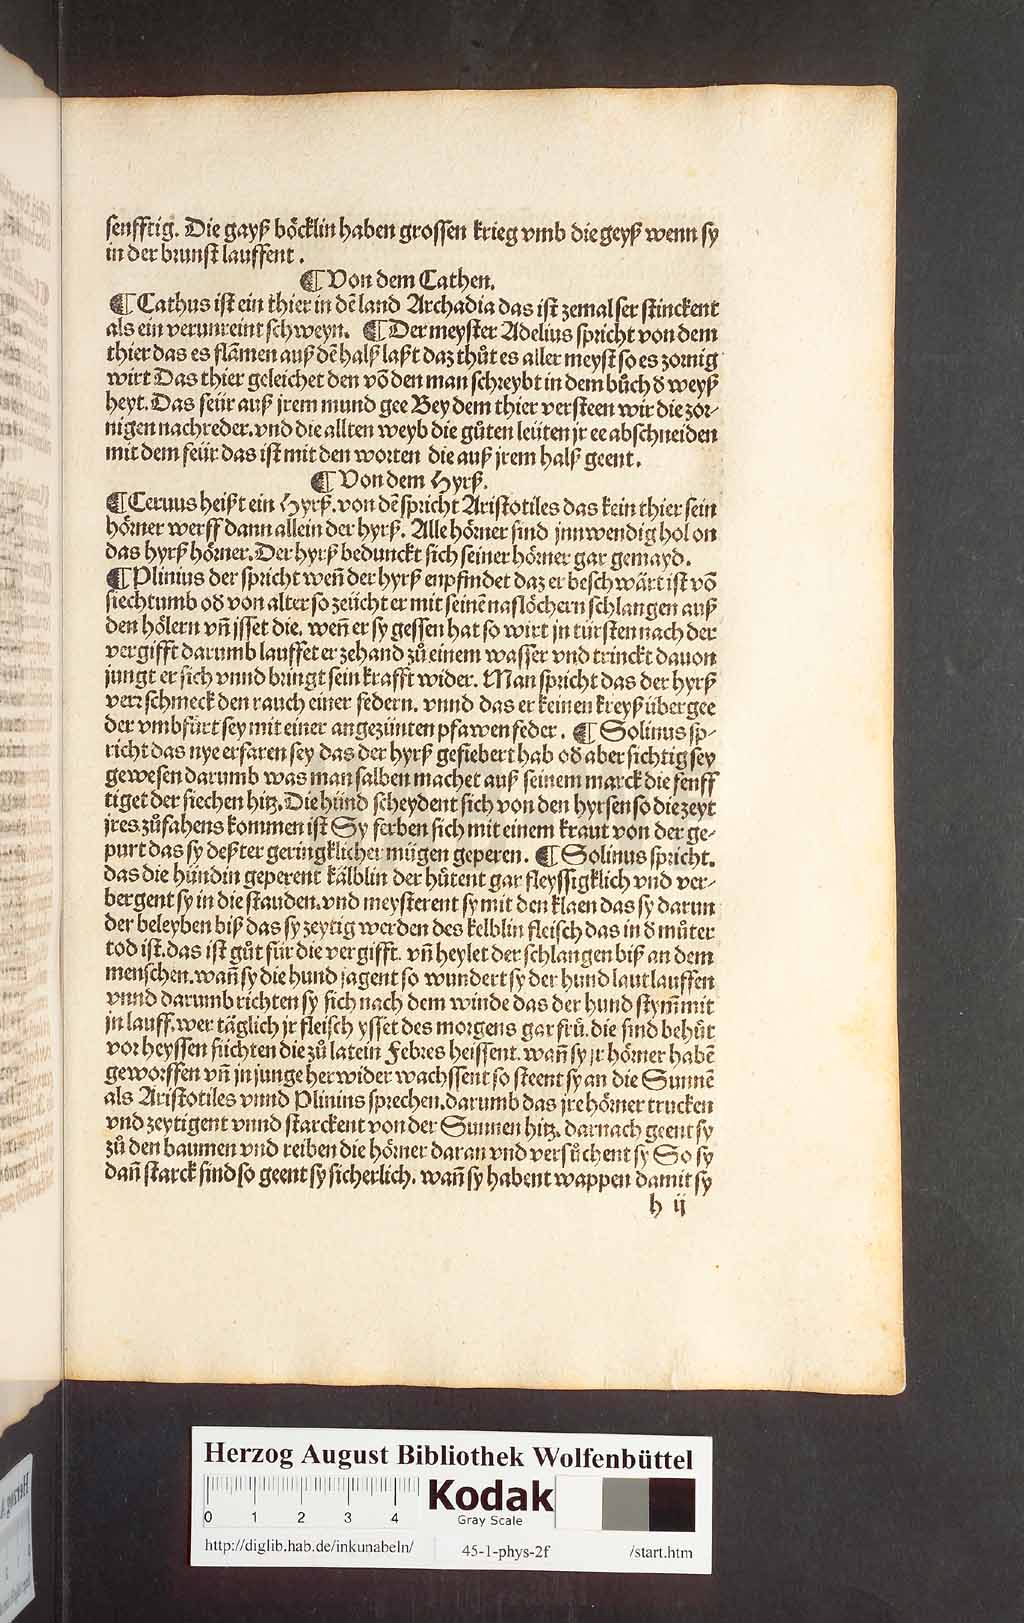 senfftig. Die gayß böcklin haben grossen krieg vmb die geyß wenn sy
in der brunst lauffent.
¶ Von dem Cathen.
¶ Cathus ist ein thier in dē land Archadia das ist zemal ser stinckent
als ein verunreint schweyn. ¶ Der meyster Adelius spricht von dem
thier das es flāmen auß dē halß laßt daz thůt es aller meyst so es zornig
wirt Das thier geleichet den vō den man schreybt in dem bůch d̄ weyß
heyt. Das feür auß jrem mund gee Bey dem thier versteen wir die zor⸗
nigen nachreder. vnd die allten weyb die gůten leüten jr ee abschneiden
mit dem feür das ist mit den worten die auß jrem halß geent.
¶ Von dem Hyrß.
¶ Ceruus heißt ein Hyrß. von dē spricht Aristotiles das kein thier sein
hörner werff dann allein der hyrß. Alle hörner sind jnnwendig hol on
das hyrß hörner. Der hyrß bedunckt sich seiner hörner gar gemayd.
¶ Plinius der spricht weñ der hyrß enpfindet daz er beschwärt ist vō
siechtumb od̄ von alter so zeücht er mit seinē naslöchern schlangen auß
den hölern vñ jsset die. weñ er sy gessen hat so wirt jn türsten nach der
vergifft darumb lauffet er zehand zů einem wasser vnd trinckt dauon
jungt er sich vnnd bringt sein krafft wider. Man spricht das der hyrß
verr schmeck den rauch einer federn. vnnd das er keinen kreyß über gee
der vmbfürt sey mit einer angezünten pfawen feder. ¶ Solinus sp⸗
richt das nye erfaren sey das der hyrß gefiebert hab od̄ aber sichtig sey
gewesen darumb was man salben machet auß seinem marck die senff
tiget der siechen hitz. Die hünd scheydent sich von den hyrsen so die zeyt
jres zůfahens kommen ist Sy ferben sich mit einem kraut von der ge⸗
purt das sy deßter geringklicher mügen geperen. ¶ Solinus spricht.
das die hündin geperent kälblin der hůtent gar fleyssigklich vnd ver⸗
bergent sy in die stauden. vnd meysterent sy mit den klaen das sy darun
der beleyben biß das sy zeytig werden des kelblin fleisch das in d̄ můter
tod ist. das ist gůt für die vergifft. vñ heylet der schlangen biß an dem
menschen. wañ sy die hund jagent so wundert sy der hund laut lauffen
vnnd darumb richten sy sich nach dem winde das der hund stym̄ mit
jn lauff. wer täglich jr fleisch ysset des morgens gar frů. die sind behůt
vor heyssen süchten die zů latein Febres heissent. wañ sy jr hörner habē
geworffen vñ jn junge her wider wachssent so steent sy an die Sunnē
als Aristotiles vnnd Plinius sprechen. darumb das jre hörner trucken
vnd zeytigent vnnd starckent von der Sunnen hitz. darnach geent sy
zů den baumen vnd reiben die hörner daran vnd versůchent sy So sy
dañ starck sind so geent sy sicherlich. wañ sy habent wappen damit sy
h ij
Herzog August Bibliothek Wolfenbüttel
0 1 2 3 4
Kodak
Gray Scale
http://diglib.hab.de/inkunabeln/ 45-1-phys-2f /start.htm